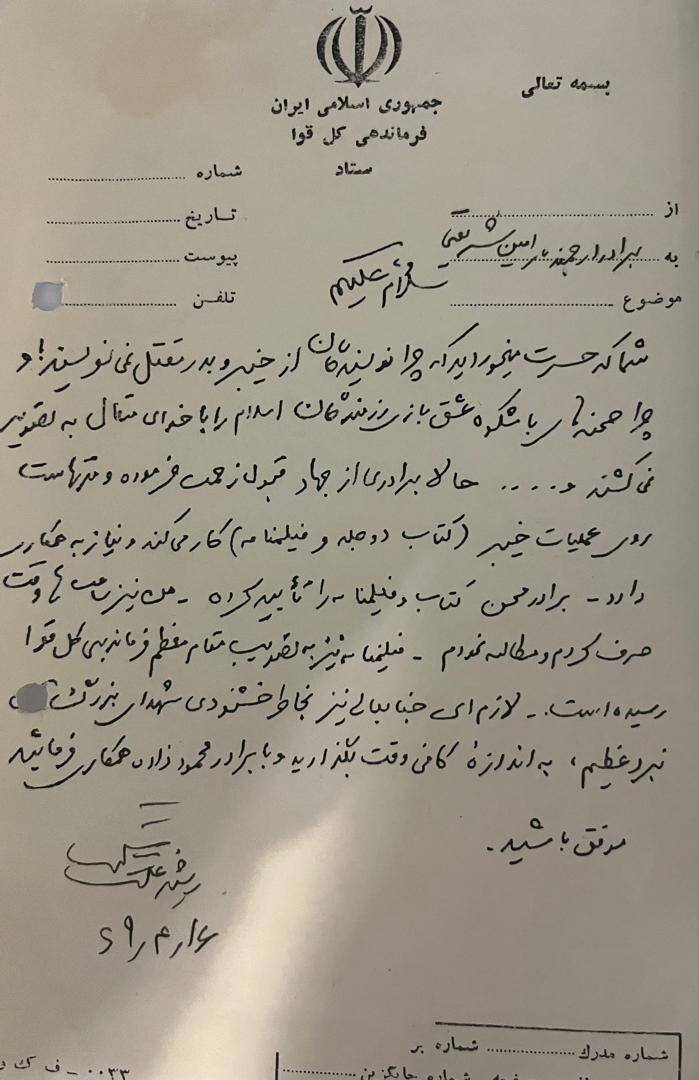 بسمه تعالی
جمهوری اسلامی ایران
فرماندهی کل قوا
ستاد
شماره
تاریخ
پیوست
تلفن
از
به برادر ارجمند امین شریعتی
موضوع
سلام علیکم
شما که حسرت میخورید که چرا نویسندگان از خیبر و بدر مقتل نمی نویسند! و
چرا صحنه های باشکوه عشق بازی رزمندگان اسلام را با خدای متعال به تصویر
نمی کشند و .... حالا برادری از جهاد قبول زحمت فرموده و مدتهاست
روی عملیات خیبر (کتاب دو جلد و فیلمنامه) کار می کند و نیاز به همکاری
دارد - برادر محسن کتاب و فیلمنامه را تأیید کرده - من نیز ساعت ها وقت
صرف کردم و مطالعه نمودم - فیلمنامه نیز به تصویب مقام معظم فرماندهی کل قوا
رسیده است. - لازم است جنابعالی نیز بخاطر خشنودی شهدای بزرگ
نبرد عظیم، به اندازۀ کافی وقت بگذارید و با برادر محمودزاده همکاری فرمائید
موفق باشید.
شماره مدرك
شماره بر
شماره جایگزین
۰۰۳۳ - ف ك و